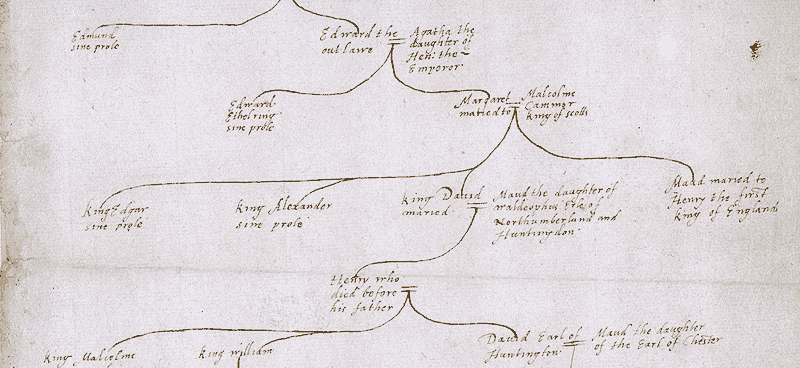 Edmund
sine prole
Edward the
outlawe
Agatha the
daughter of
Hen: the
Emperor
Edward
Ethelring
sine prole
Margaret
maried to
Malcolme
Cammor
King of scotts
King Edgar
sine prole
King Alexander
sine prole
King David
maried
Maud the daughter of
Waldeophus Erle of
Northumberland and
Huntingdon
Maud maried to
Henry the first
King of England
Henry who
died before
his father
King Malcolme
King william
David Earl of
Huntington
Maud the daughter
of the Earl of Chester